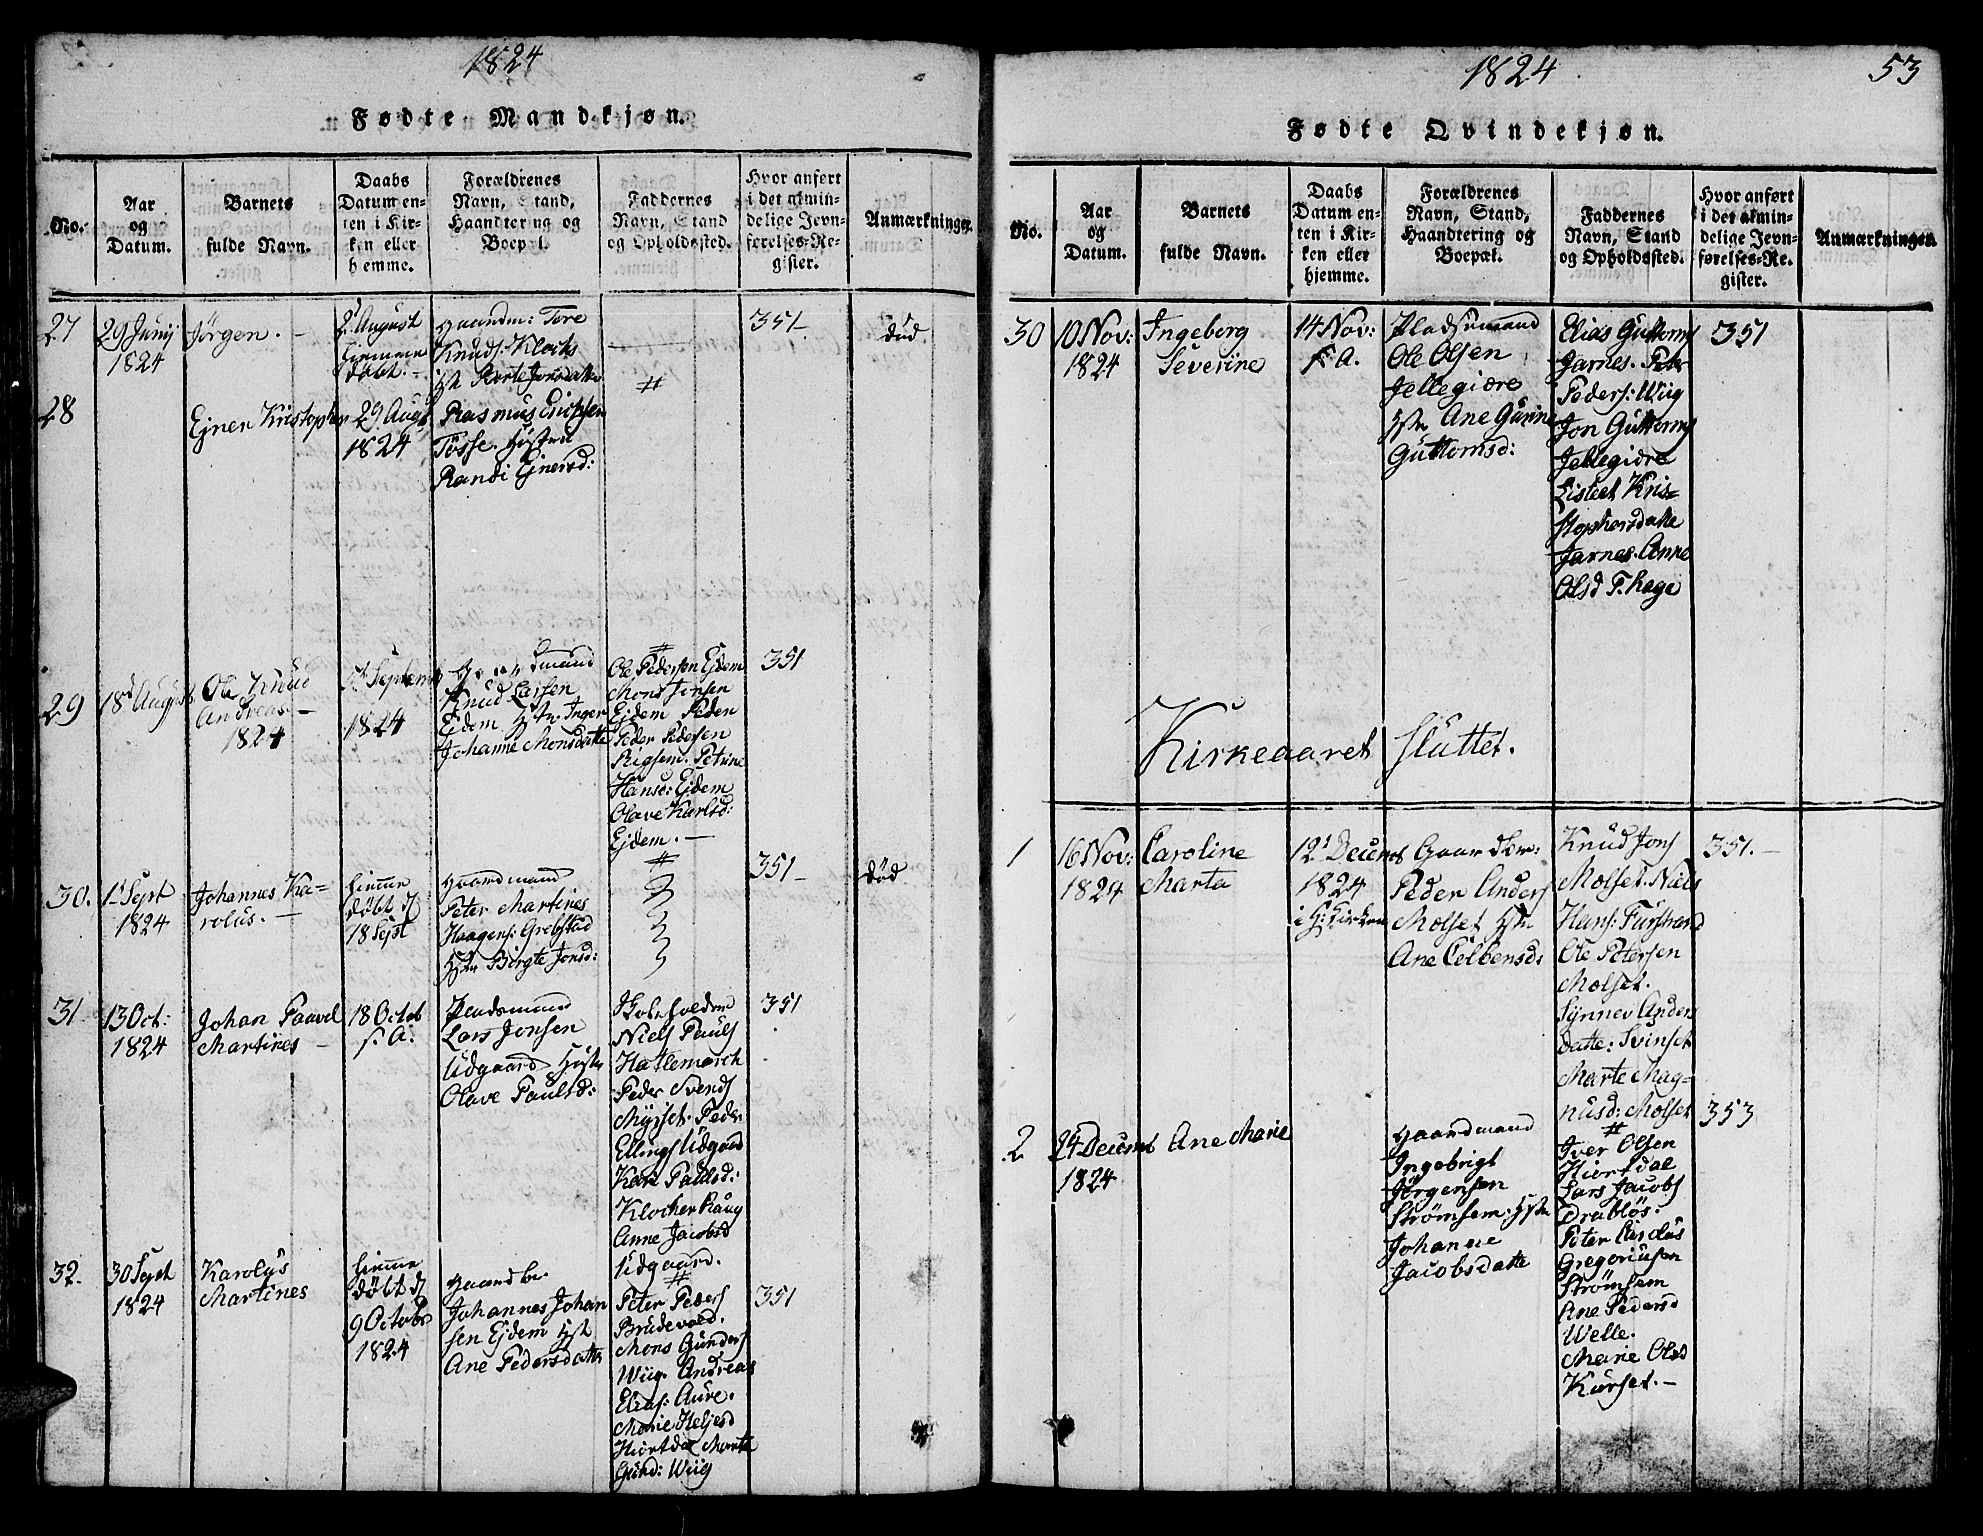 1824
Fødte Mandkjøn.
No.
Aar
og
Datum.
Barnets
fulde Navn.
Daabs
Datum en-
ten i Kir-
ken eller
hjemme.
Forældrenes
Navn, Stand,
Haandtering og
Boepæl.
Faddernes
Navn, Stand
og Opholdssted.
Hvor anført
i det almin-
delige Jevn-
førelses-Re-
gister.
Anmærkninger.
27
29 Junij
1824
Jörgen. —
2 August
hiemme
döbt. —
Gaardm: Tore
Knuds. Klochs
Hstr Marte Jonsdatter
—
#
351-
död
28
Ejner Kristopher
29 Aug
1824
Rasmus Erichsen
Tösse. Hustru
Randi Ejnersd:
29
18d August
Ole Knud
Andreas. —
1824
Septemb
1824
Knud Larsen
Ejdem Hstr. Inger
Johanne Monsdatte
#
Ole Pedersen Ejdem
Mons Jonsen
Ejdem Peder
Peder Pedersen
Rigsem. Petrine
Hansd: Ejdem
Olave Karlsd:
Ejdem. —
351
30.
1 Sept
1824
Johannes Ka-
rolus. —
hiemme
döbt d
18 Sept
Gaardmand
Peter Martines
Haagens: Grebstad
Hstr Birgte Jonsd:
#
351-
död
31
13 Oct:
1824
Johan Paavel
Martines —
18 Octob
s. A:
Pladsmand
Lars Jonsen
Udgaard Hstr
Olave Paulsd:
Niels Pauls
Hatlemarch
Peder Svends
Mysset. Peder
Ellings Udgaard
Kari Paulsd:
Klocher Haug
Anne Jacobsd
Udgaard.
351
32.
30 Sept
1824
Karolus
Martines
hiemme
döbt d
9 Octobr
1824
Gaardbr.
Johannes Johan
sen Ejdem Hst
Ane Pedersdatter
#
Peter Peders
Brudevold.
Mons Gunders
Wiig. Andreas
Elias: Aure.
Marie Heljesd
Hiortdal Marte
Gund: Wiig
351
1824
53
Fødte Qvindekjøn.
No.
Aar
og
Datum.
Barnets
fulde Navn.
Daabs
Datum en-
ten i Kir-
ken eller
hjemme.
Forældrenes
Navn, Stand,
Haandtering og
Boepæl.
Faddernes
Navn, Stand
og Opholdssted.
Hvor anført
i det almin-
delige Jevn-
førelses-Re-
gister.
Anmærkninger.
30
10 Nov:
1824
Ingeborg
Severine
14 Nov:
s. A.
Pladsemand
Ole Olsen
Jellegiære
Hstr Ane Gurine
Guttormsd:
Elias Guttorms
Jarnes. Peter
Peders: Wiig
Jon Guttorms
Jellegiære
Lisbeet Kris-
stophersdatte
Jarnes. Anne
Olsd T.hage
351
Kirkeaaret sluttet.
1
16 Nov:
1824
Caroline
Marta
12t Decemb
1824
i H: Kirken
Gaardbr:
Peder Anders
Molset Hstr
Ane Eelbensd:
Knud Jons
Molset. Niels
Hans: Furstrand
Ole Petersen
Molset.
Synnev Anders
datte: Svinset
Marte Mag-
nusd: Molset
351. —
2
24 Decemb
1824
Ane Marie
Gaardmand
Ingebrigt
Jörgensen
Strömsem: Hstr
Johanne
Jacobsdatte
#
Iver Olsen
Hiortdal
Lars Jacobs
Drablös.
Peter Carolus
Gregoriusen
Strömsem
Ane Pedersd
Welle.
Marie Olsd
Kurset. —
353